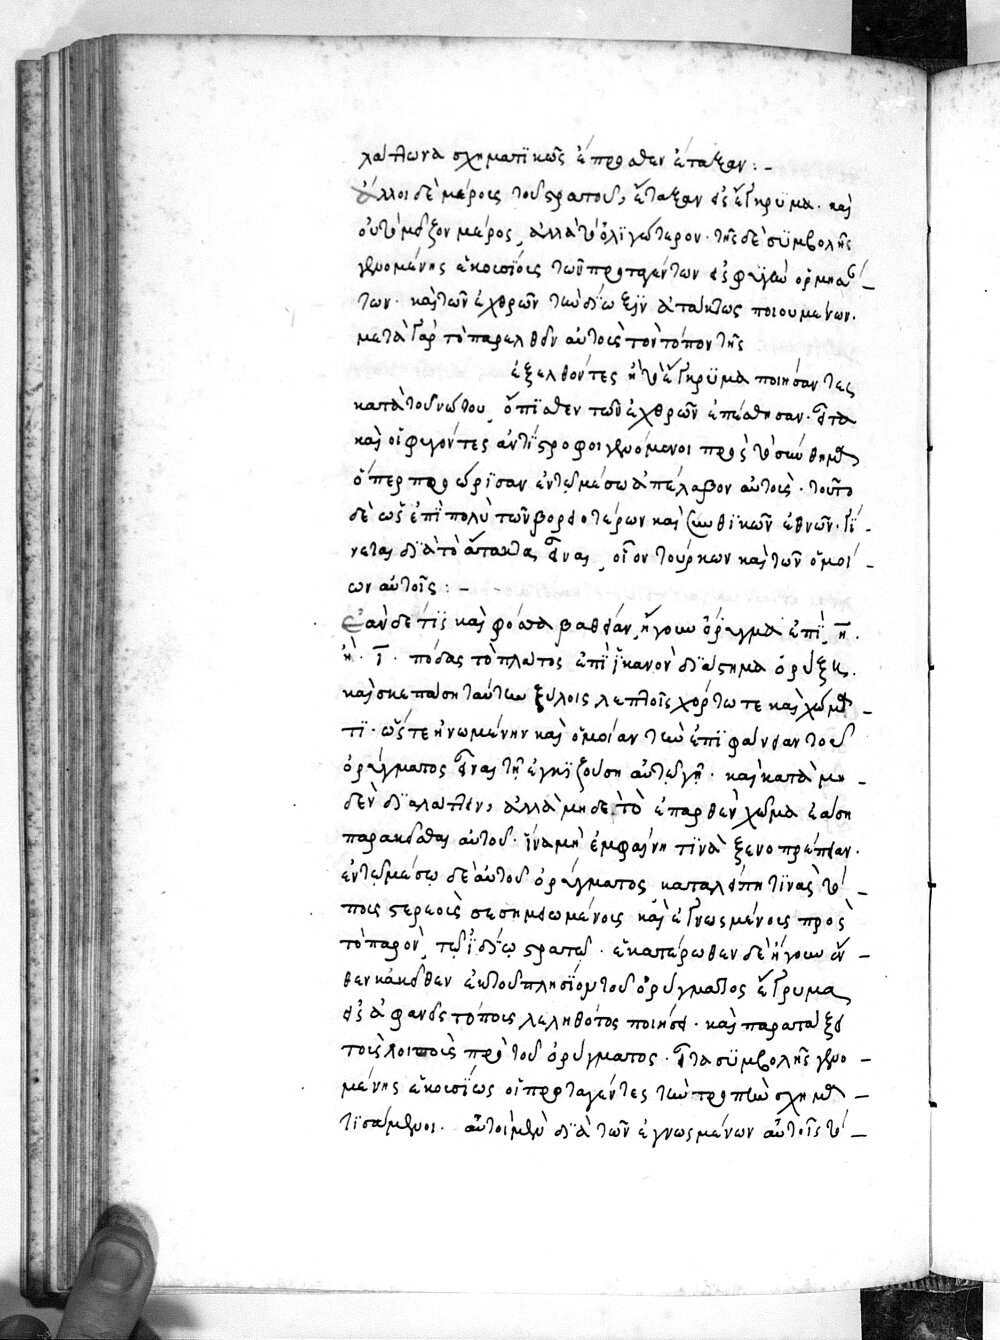 λάγγωνα σχηματικῶς ἔμπροσθεν ἔταξαν:-
ἄλλοι δὲ μέρος τοῦ στρατοῦ, ἔταξαν εἰς ἔγκρυμα· καὶ
οὐ τὸ μεῖζον μέρος, ἀλλὰ τὸ ὀλιγώτερον· τῆς δὲ συμβολῆς
γενομένης ἑκουσίοις τῶν προταγέντων εἰς φυγὴν ὁρμησάν-
των· καὶ τῶν ἐχθρῶν τὴν δίωξιν ἀτάκτως ποιουμένων·
μετὰ γὰρ τὸ παρελθεῖν αὐτοὺς τὸν τόπον τῆς
ἐξελθόντες οἱ τὸ ἔγκρυμα ποιήσαντες
κατὰ τοῦ νώτου, ὄπισθεν τῶν ἐχθρῶν ἐπέθησαν· εἶτα
καὶ οἱ φυγόντες ἀντίστροφοι γενόμενοι πρὸς τὸ σύνθημα
ὅπερ προώρισαν ἐν τῷ μέσῳ ἀπέλαβον αὐτούς· τοῦτο
δὲ ὡς ἐπὶ πολὺ τῶν βορειοτέρων καὶ σκυθικῶν ἐθνῶν· γί-
νεται διὰ τὸ ἄτακτα εἶναι, οἷον τούρκων καὶ τῶν ὁμοί-
ων αὐτοῖς:-
Ἐὰν δέ τις καὶ φόσσα βαθεῖαν, ἤγουν ὄρυγμα ἐπὶ, η̄·
ἢ· ῑ· πόδας τὸ πλάτος ἐπὶ ἱκανὸν διάστημα ὀρύξει·
καὶ σκεπάσῃ ταύτην ξύλοις λεπτοῖς χόρτω τε καὶ χώμα-
τι· ὥστε ἡνωμένην καὶ ὁμοίαν τὴν ἐπιφάνειαν τοῦ
ὀρύγματος εἶναι τῇ ἐγκιζούσῃ αὐτῷ γῇ· καὶ κατὰ μη-
δὲν διαλάττειν, ἀλλὰ μηδὲ τὸ ἐπαρθὲν χῶμα ἐάσῃ
παρακεῖσθαι αὐτοῦ· ἵνα μὴ ἐμφαίνῃ τινὰ ξενοπρέπειαν·
ἐν τῷ μέσῳ δὲ αὐτοῦ ὀρύγματος καταλείπῃ τινὰς τό-
πους στερεοὺς σεσημειωμένοις καὶ ἐγνωσμένοις πρὸς
τὸ παρὸν, τῷ ἰδίῳ στρατῷ· ἑκατέρωθεν δὲ ἤγουν ἔν-
θεν κἀκεῖθεν ἐκ τοῦ πλησίον τοῦ ὀρύγματος ἔγκρυμα
εἰς ἀφανεῖς τόποις λεληθότος ποιήσει· καὶ παρατάξει
τοὺς λοιποὺς πρὸ τοῦ ὀρύγματος· εἶτα συμβολῆς γενο-
μένης ἑκουσίως οἱ προταγέντες τὴν τροπὴν σχημα-
τισάμενοι· αὐτοὶ μὲν διὰ τῶν ἐγνωσμένων αὐτοῖς τό-